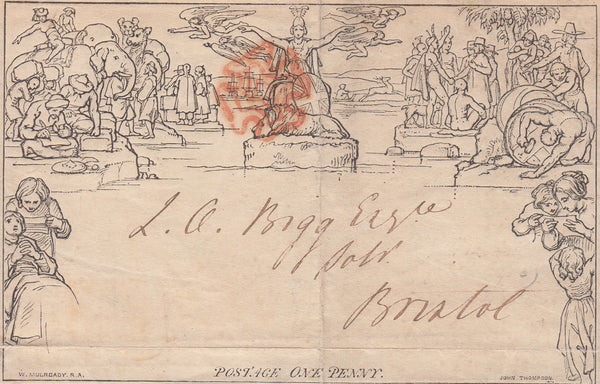 L. O. Bigg Esqre
Solr
Bristol
W. MULREADY. R.A.
POSTAGE ONE PENNY.
JOHN THOMPSON